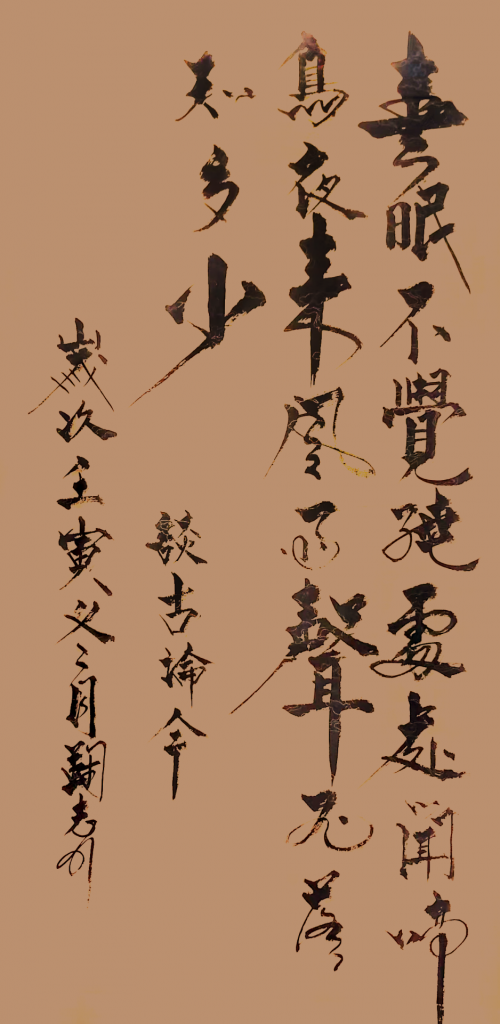 春眠不覺曉處處聞啼
鳥夜来風雨聲花落
知多少
談古論今
歲次壬寅父二月鞠志